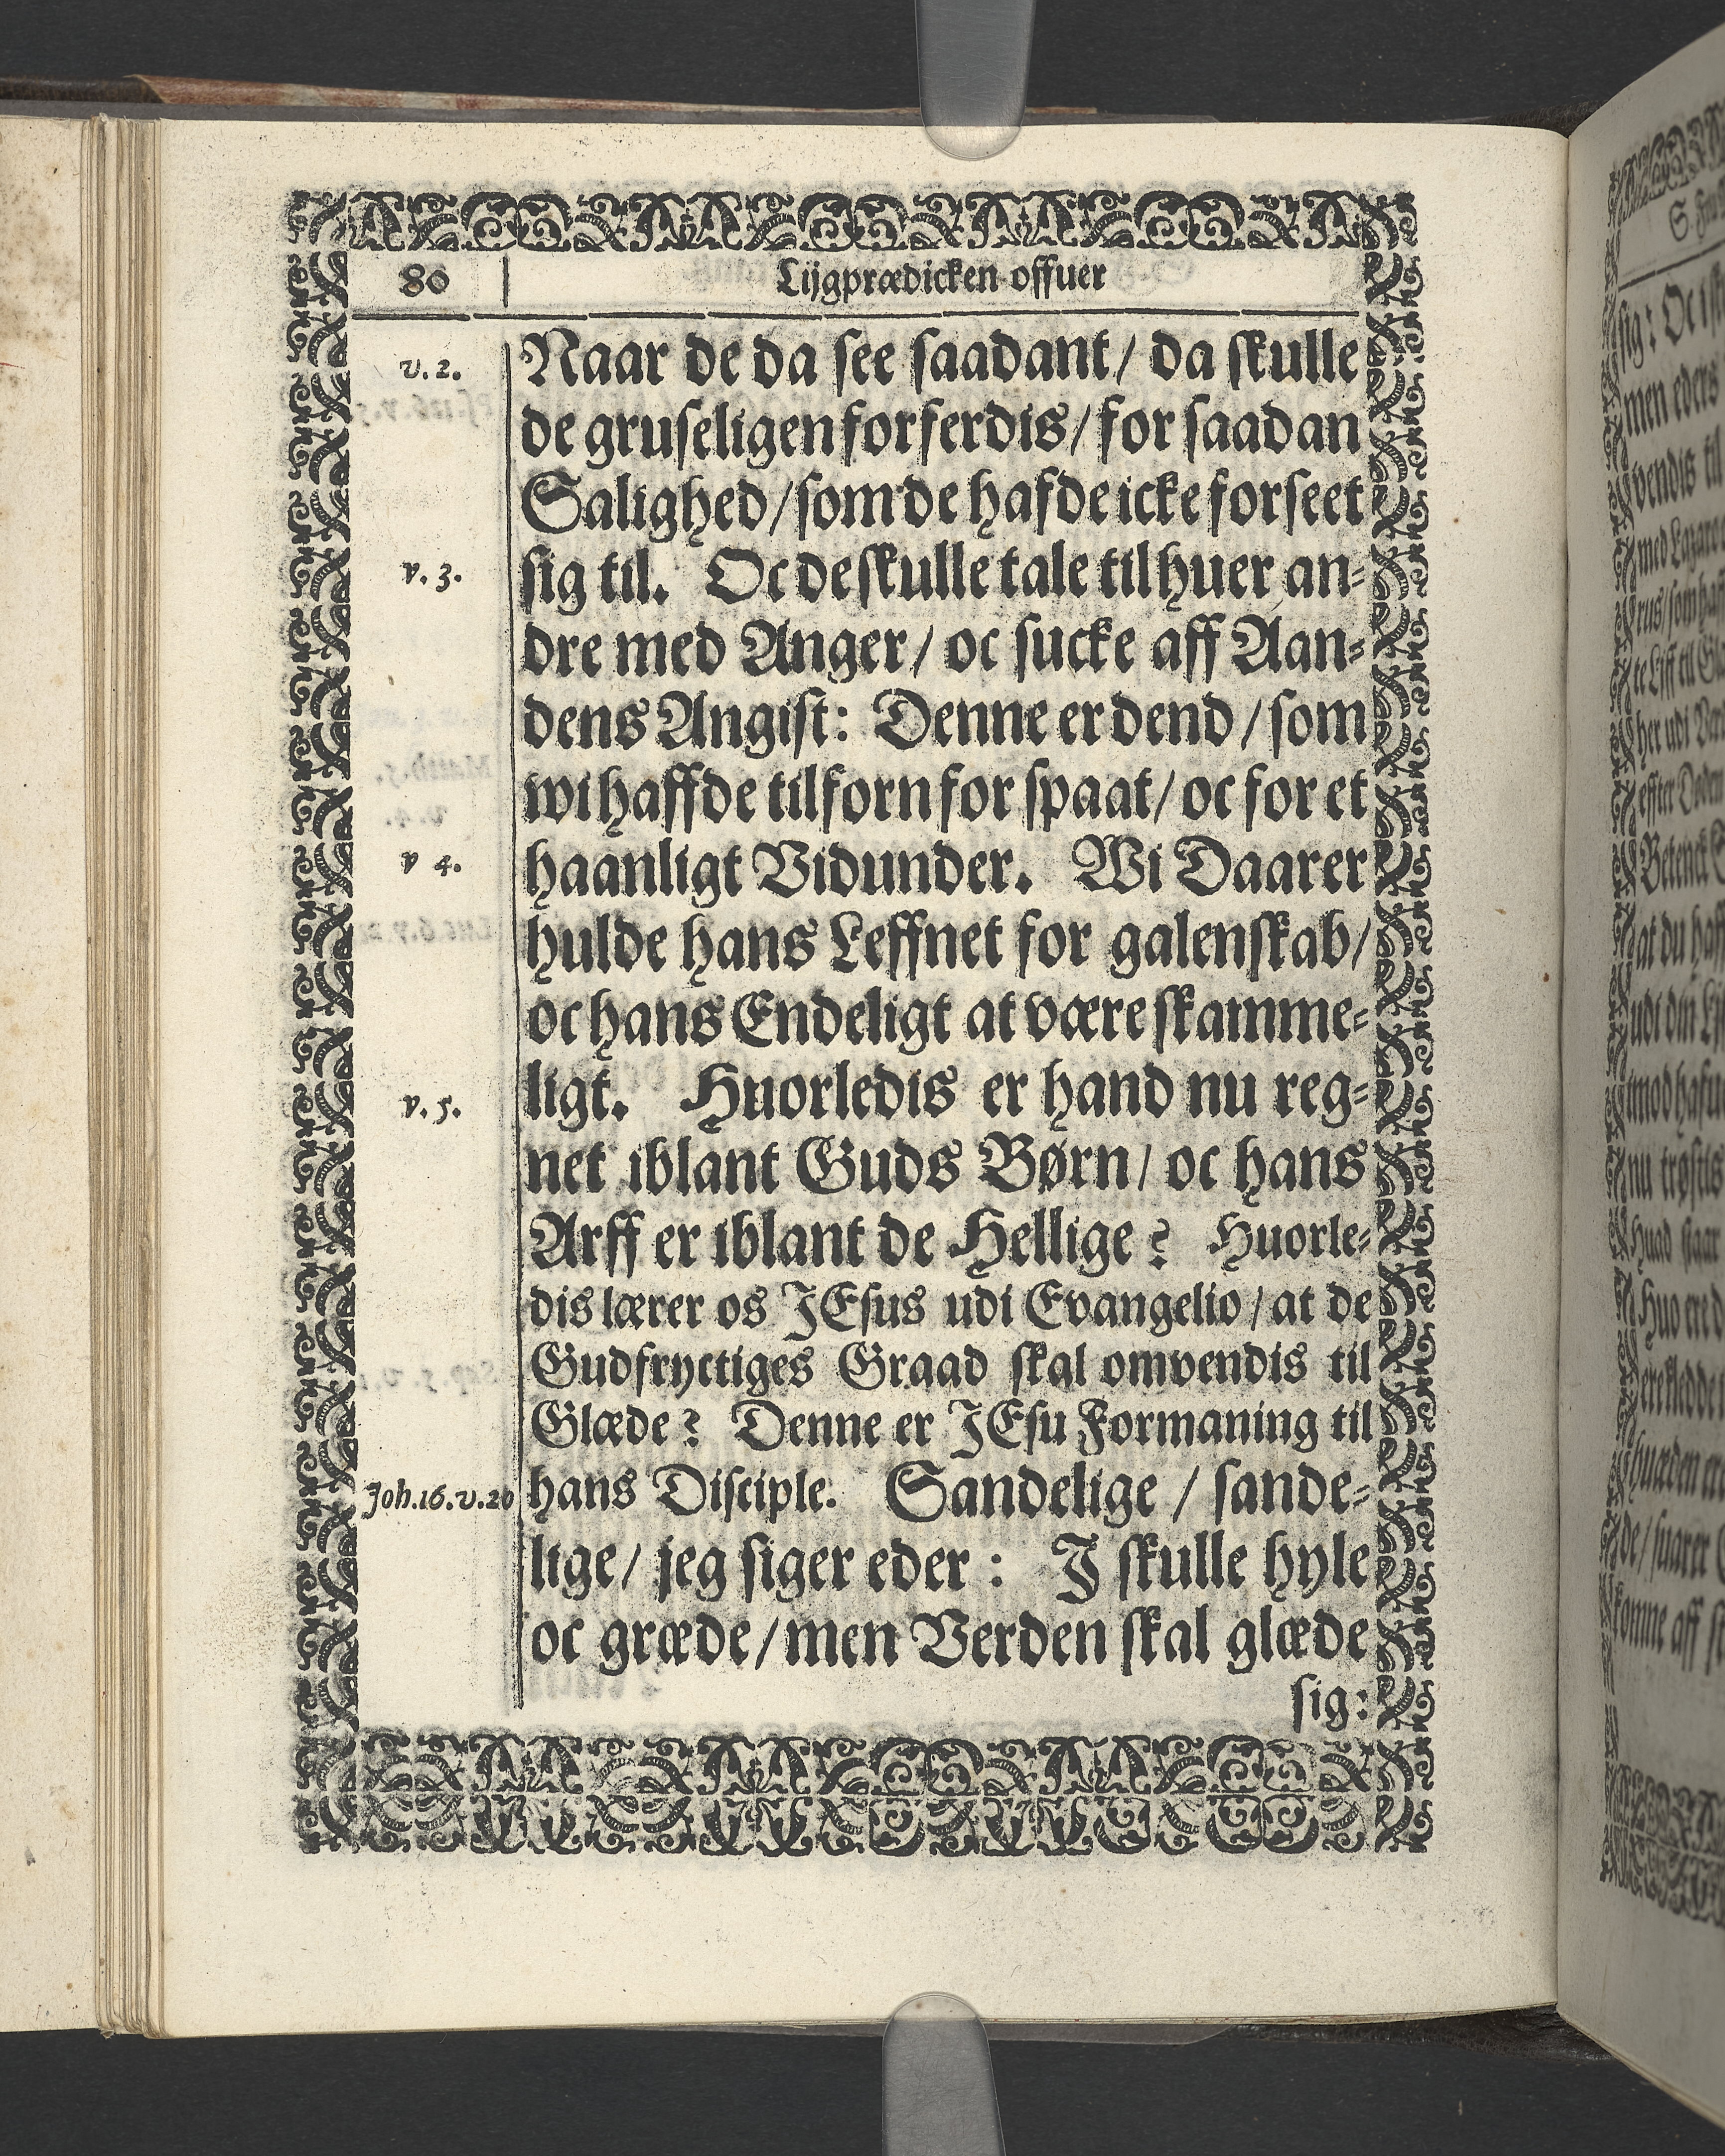 80
Lijgprædicken offuer
v. 2.
Naar de da see saadant/ da skulle
de gruseligen forferdis/ for saadan
Salighed/ som de hafde icke forseet
v. 3.
sig til. Oc de skulle tale til huer an-
dre med Anger/ oc sucke aff Aan-
dens Angist: Denne er dend/ som
wi haffde tilforn for spaat/ oc for et
v 4.
haanligt Vidunder. Wi Daarer
hulde hans Leffnet for galenskab/
oc hans Endeligt at være skamme-
v. 5.
ligt. Huorledis er hand nu reg-
net iblant Guds Børn/ oc hans
Arff er iblant de Hellige? Huorle-
dis lærer os JEsus udi Evangelio/ at de
Gudfryctiges Graad skal omvendis til
Glæde? Denne er JEsu Formaning til
Joh.16.v.20
hans Disciple. Sandelige/ sande-
lige/ jeg siger eder: J skulle hyle
oc græde/ men Verden skal glæde
sig: